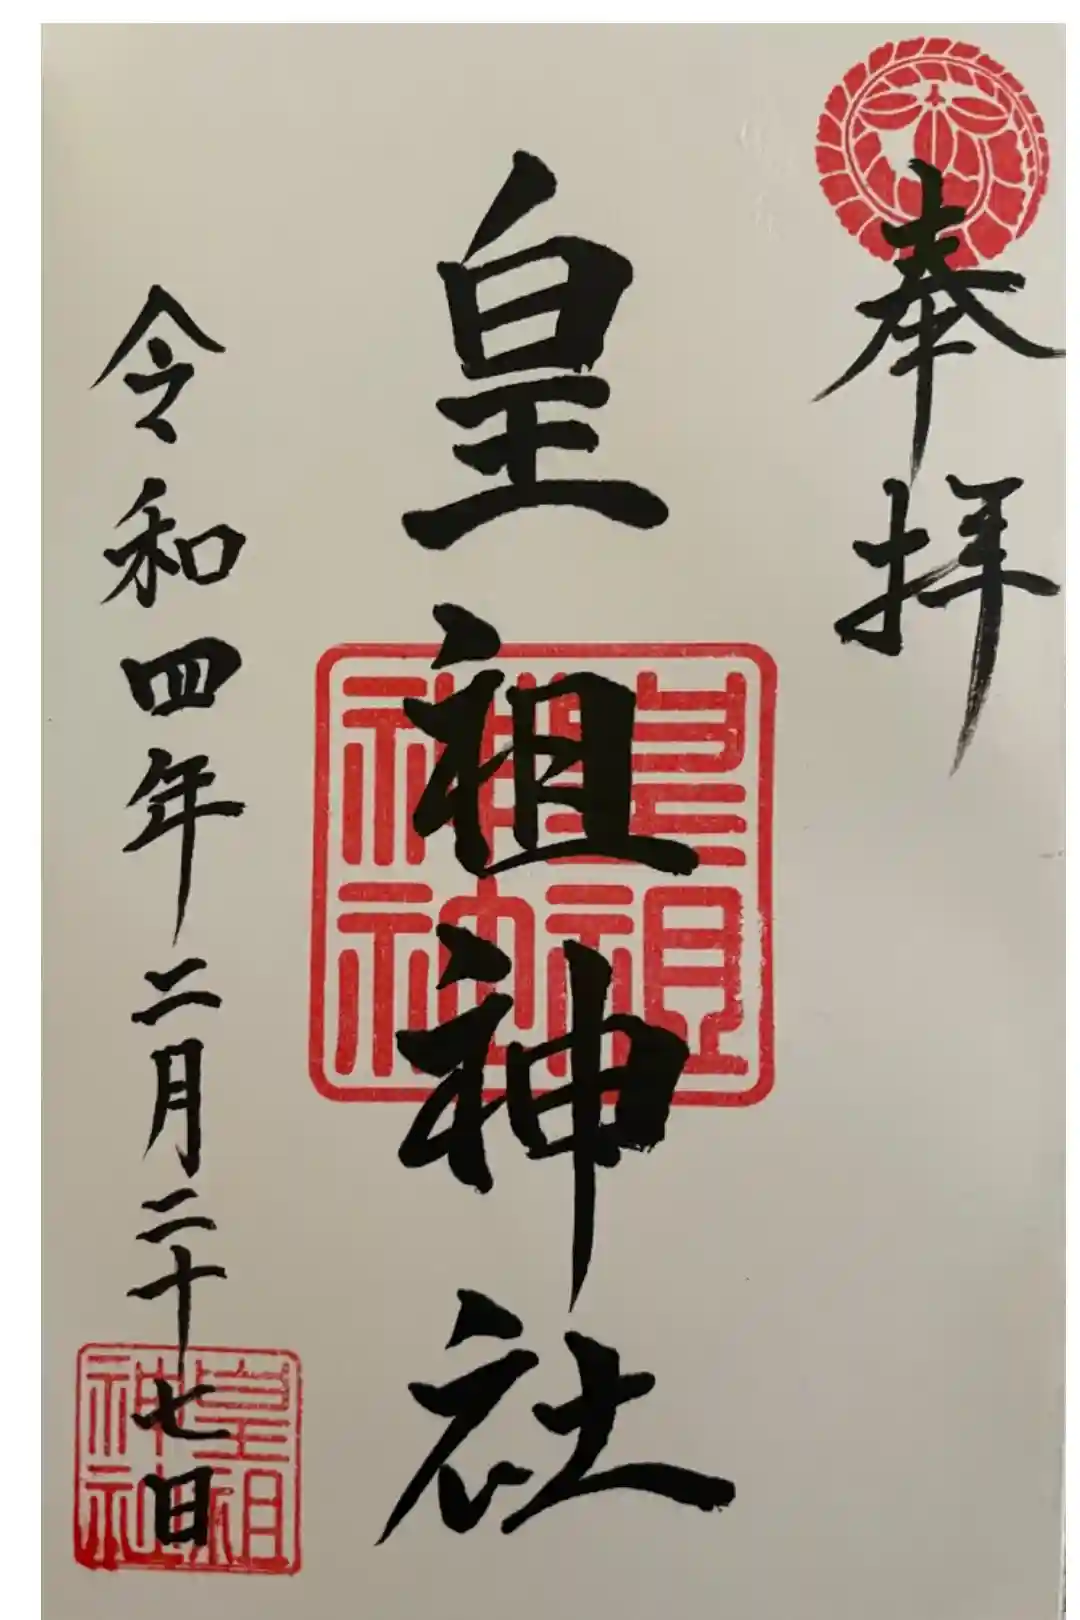 奉拝
皇祖神社
令和四年二月二十七日
皇祖
神社
皇祖
神社